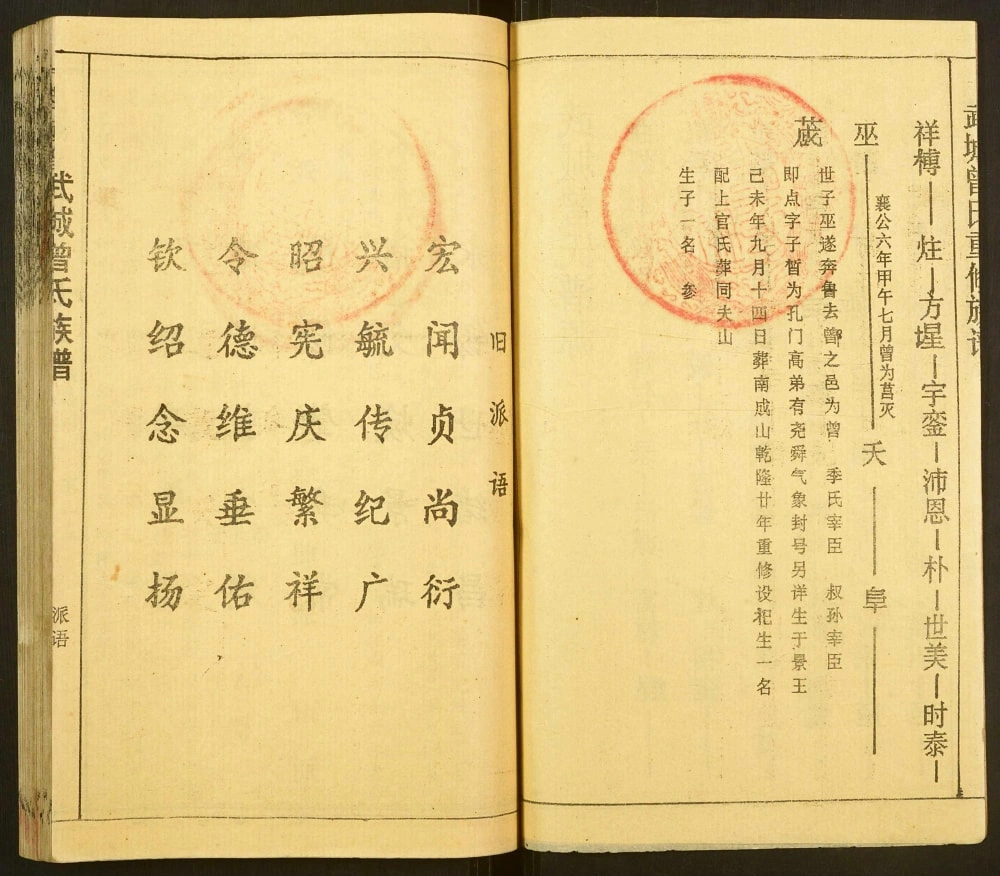 武城曾氏重修族谱
祥榑—炷—方墭—宇銮—沛恩—朴—世美—时泰—
巫——夭——阜——
襄公六年甲午七月曾为莒灭
世子巫遂奔鲁去鄫之邑为曾 季氏宰臣 叔孙宰臣
蒧
即点字子晳为孔门高弟有尧舜气象封号另详生于景王
己未年九月十四日葬南成山乾隆廿年重修设祀生一名
配上官氏葬同夫山
生子一名 参
旧派语
宏闻贞尚衍
兴毓传纪广
昭宪庆繁祥
令德维垂佑
钦绍念显扬
武城曾氏族谱
派语